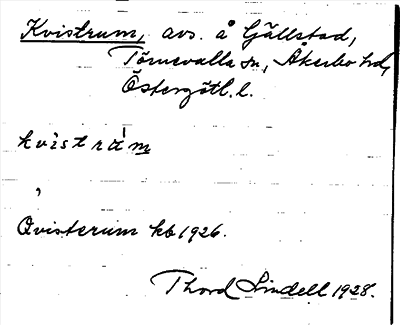 Kvistrum, avs. å Gällstad,
Törnevalla sn, Åkerbo hd,
Östergötl. l.
kvistrúm
Qvisterum kb 1926.
Thord Lindell 1928.